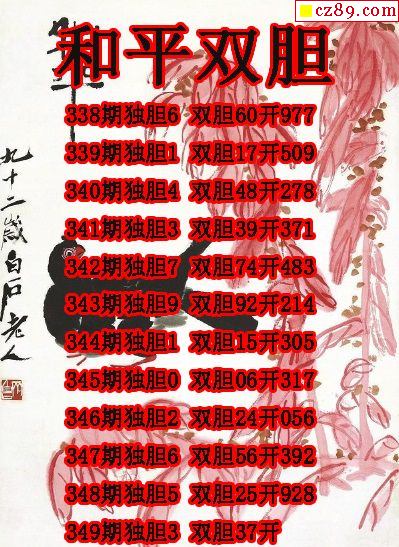 cz89.com
和平双胆
338期独胆6 双胆60开977
339期独胆1 双胆17开509
340期独胆4 双胆48开278
341期独胆3 双胆39开371
342期独胆7 双胆74开483
343期独胆9 双胆92开214
344期独胆1 双胆15开305
345期独胆0 双胆06开317
346期独胆2 双胆24开056
347期独胆6 双胆56开392
348期独胆5 双胆25开928
349期独胆3 双胆37开
九十二歲白石老人